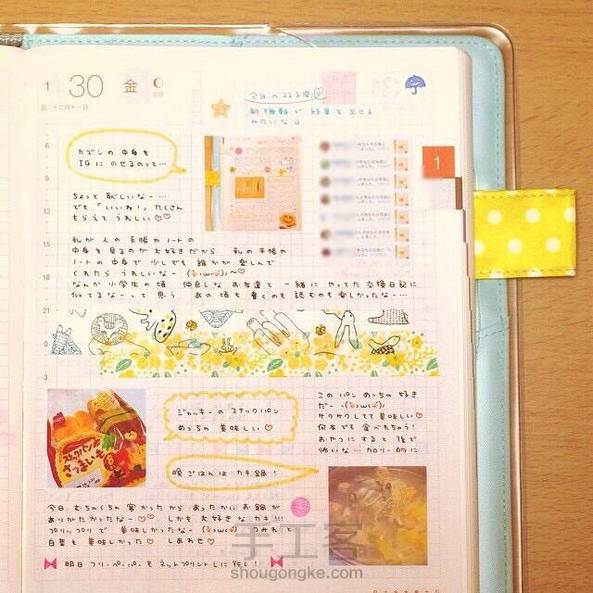 1 30 金
今日の
カズンの中身を
IGにのせるのって…
1
ちょっと恥しいなー…
でも「いいね!」たくさん
もらえてうれしい♡♡
私が人の手帳やノートの
中身を見るの大好きだから 私の手帳や
ノートの中身で少しでも誰かが楽しんで
くれたらうれしいなー
なんか小学生の頃 仲良しなお友達と一緒にやってた交換日記に
似てるなーって思う あの頃も書くのも読むのも楽しかったなー…
6
9
12
15
18
21
0
3
ジャッキーのスナックパン
めっちゃ美味しい♡
このパンめっちゃ好き
だー
サクサクしてて美味しい♡
何本でも食べれちゃう!
おやつにすると後で
怖いな…カロリー的に
晩ごはんはカキ鍋!
今日むちゃくちゃ寒かったからあったかいお鍋が
ありがたかったなー♡♡ しかも大好きなカキ!!!
プリップリで美味しかったなー つみれと
白菜も美味しかった♡しあわせ♡
明日フリーペーパーをネットプリントしに行く!
手工客
shougongke.com